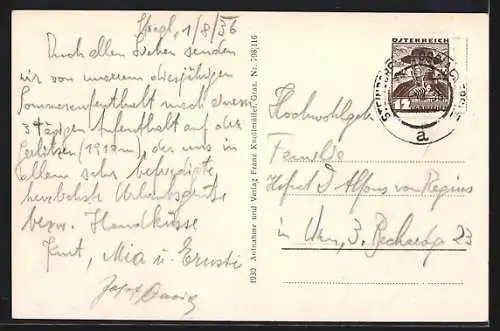 1/8/36
Euch allen Lieben senden
wir von unserem diesjährigen
Sommeraufenthalt nach einem
34 tägigen Aufenthalt auf der
Gerlitzen (1910m), der uns in
allem sehr befriedigte
herzlichste Urlaubsgrüße
bezw. Handküsse
Kurt, Mia u. Ernsti
Josef
1935 Aufnahme und Verlag Franz Knollmüller, Graz. Nr. 708/116
ÖSTERREICH
12
GROSCHEN
a
Hochwohlgeb.
Familie
Hofrat D Alfons von Regius
in Wien, 3. Rechtesg 23